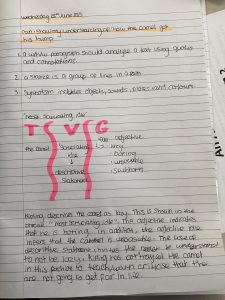 Wednesday 25th June 2025
can I show my understanding of how the camel got his hump
1. a whole paragraph should analyse a text using quotes and connotations.
2. a stanza is a group of lines in a poem
3. Symbolism includes objects, sounds, places and colours.
"most 'scruciating idle'
T V G
the camel 'scruciating adjective
idle lazy
boring
descriptive unsociable
Statement stubborn
describes the camel as lazy. This is shown in the
"most 'scruciating idle" This adjective indicates
that he is boring. In addition, the adjective idle
infers that the camel is unsociable. The use of
the camel
to not be lazy. the camel
in this to teach criticise that
are not going to get far in life.